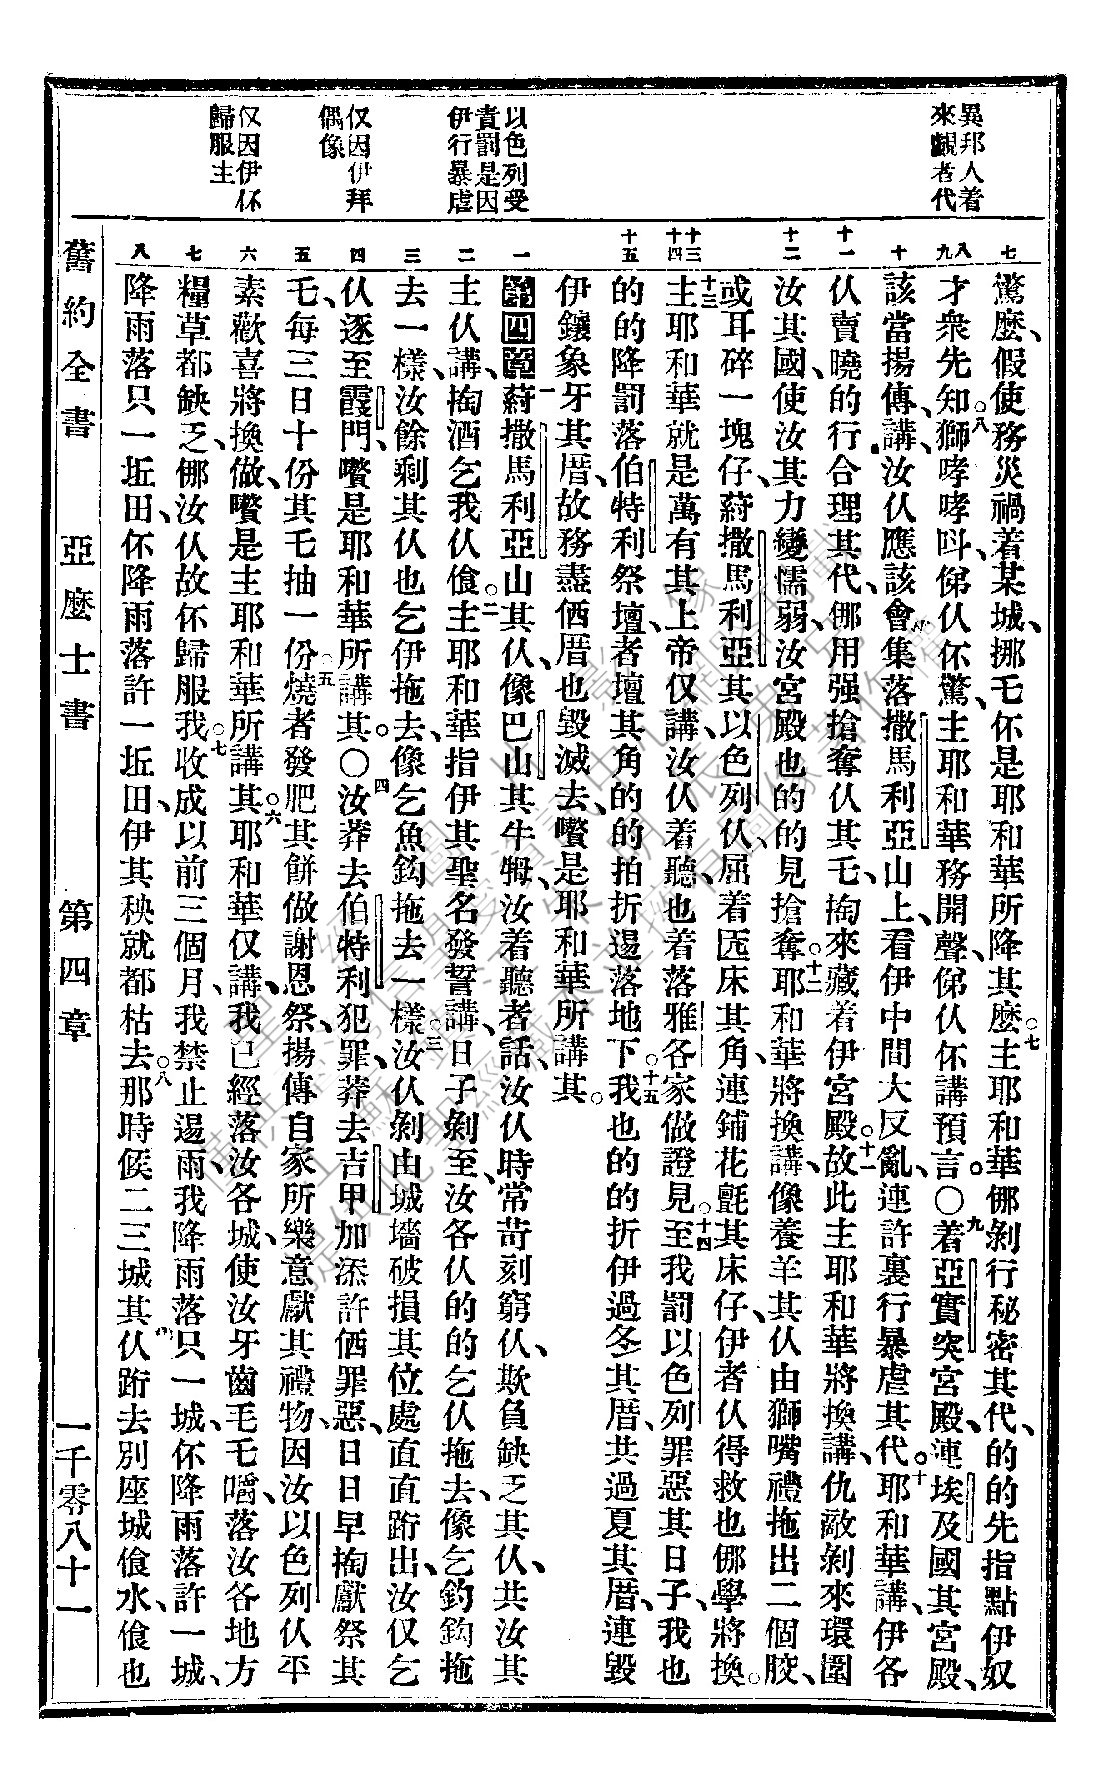 異邦人着
來覷者代
以色列受
責罰是因
伊行暴虐
仅因伊拜
偶像
仅因伊伓
歸服主
七
八
九
十
十一
十二
十三
十四
十五
一
二
三
四
五
六
七
八
驚麽、假使務災禍着某城、挪乇伓是耶和華所降其麽○七主耶和華㑚剝行秘密其代、的的先指點伊奴
才衆先知○八獅哮哮呌、㑚仈伓驚、主耶和華務開聲、㑚仈伓講預言。○九着亞實突宮殿、連埃及國其宮殿、
該當揚傳、講、汝仈應該會集落撒馬利亞山上、看伊中間大反亂、連許裏行暴虐其代。十耶和華講、伊各
仈賣曉的行合理其代、㑚用强搶奪仈其乇、掏來藏着伊宮殿○十一故此主耶和華將換講、仇敵剝來環圍
汝其國、使汝其力變懦弱、汝宮殿也的的見搶奪○十二耶和華將換講、像養羊其仈由獅嘴禮拖出二個骹、
或耳碎一塊仔、蒔撒馬利亞其以色列仈、屈着匟床其角連鋪花氈其床仔、伊者仈得救也㑚學將換。
十三主耶和華就是萬有其上帝仅講、汝仈着聽、也着落雅各家做證見○十四至我罰以色列罪惡其日子、我也
的的降罰落伯特利祭壇、者壇其角的的拍折逿落地下○十五我也的的折伊過冬其厝、共過夏其厝、連毀
伊鑲象牙其厝、故務盡価厝也毀滅去、嚽是耶和華所講其。
第四章一蒔撒馬利亞山其仈、像巴山其牛㹇、汝着聽者話、汝仈時常苛刻窮仈、欺負缺乏其仈、共汝其
主仈講、掏酒乞我仈飡○二主耶和華指伊其聖名發誓講、日子剝至、汝各仈的的乞仈拖去、像乞釣鈎拖
去一樣、汝餘剩其仈也乞伊拖去、像乞魚鈎拖去一樣○三汝仈剝由城墻破損其位處直直跨出、汝仅乞
仈逐至霞門、嚽是耶和華所講其。○四汝莽去伯特利犯罪、莽去吉甲加添許価罪惡、日日早掏獻祭其
乇、每三日十份其乇抽一份○五燒者發肥其餅做謝恩祭、揚傳自家所樂意獻其禮物、因汝以色列仈平
素歡喜將換做、嚽是主耶和華所講其○六其耶和華仅講、我已經落汝各城、使汝牙齒毛乇嚼、落汝各地方
糧草都缺乏、㑚汝仈故伓歸服我○七收成以前三個月、我禁止逿雨、我降雨落只一城、伓降雨落許一城、
降雨落只一坵田、伓降雨落許一坵田、伊其秧就都枯去○八那時候二三城其仈跨去別座城飡水、飡也
舊約全書　亞麽士書　第四章　一千零八十一